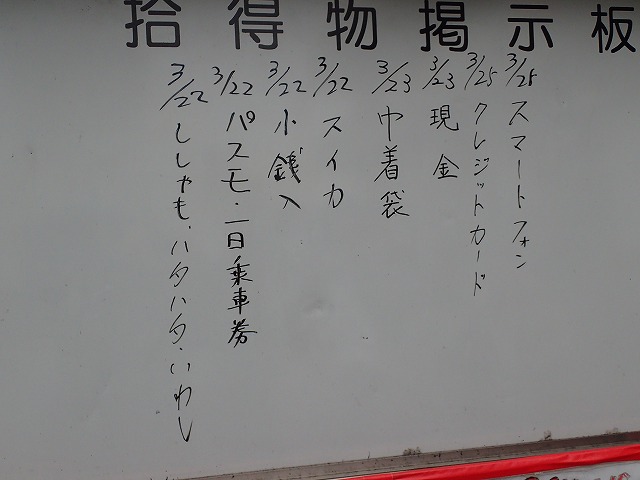 拾得物掲示板
3/25 スマートフォン
3/25 クレジットカード
3/23 現金
3/23 巾着袋
3/22 スイカ
3/22 小銭入
3/22 パスモ・一日乗車券
3/22 ししゃも、ハタハタ・いわし